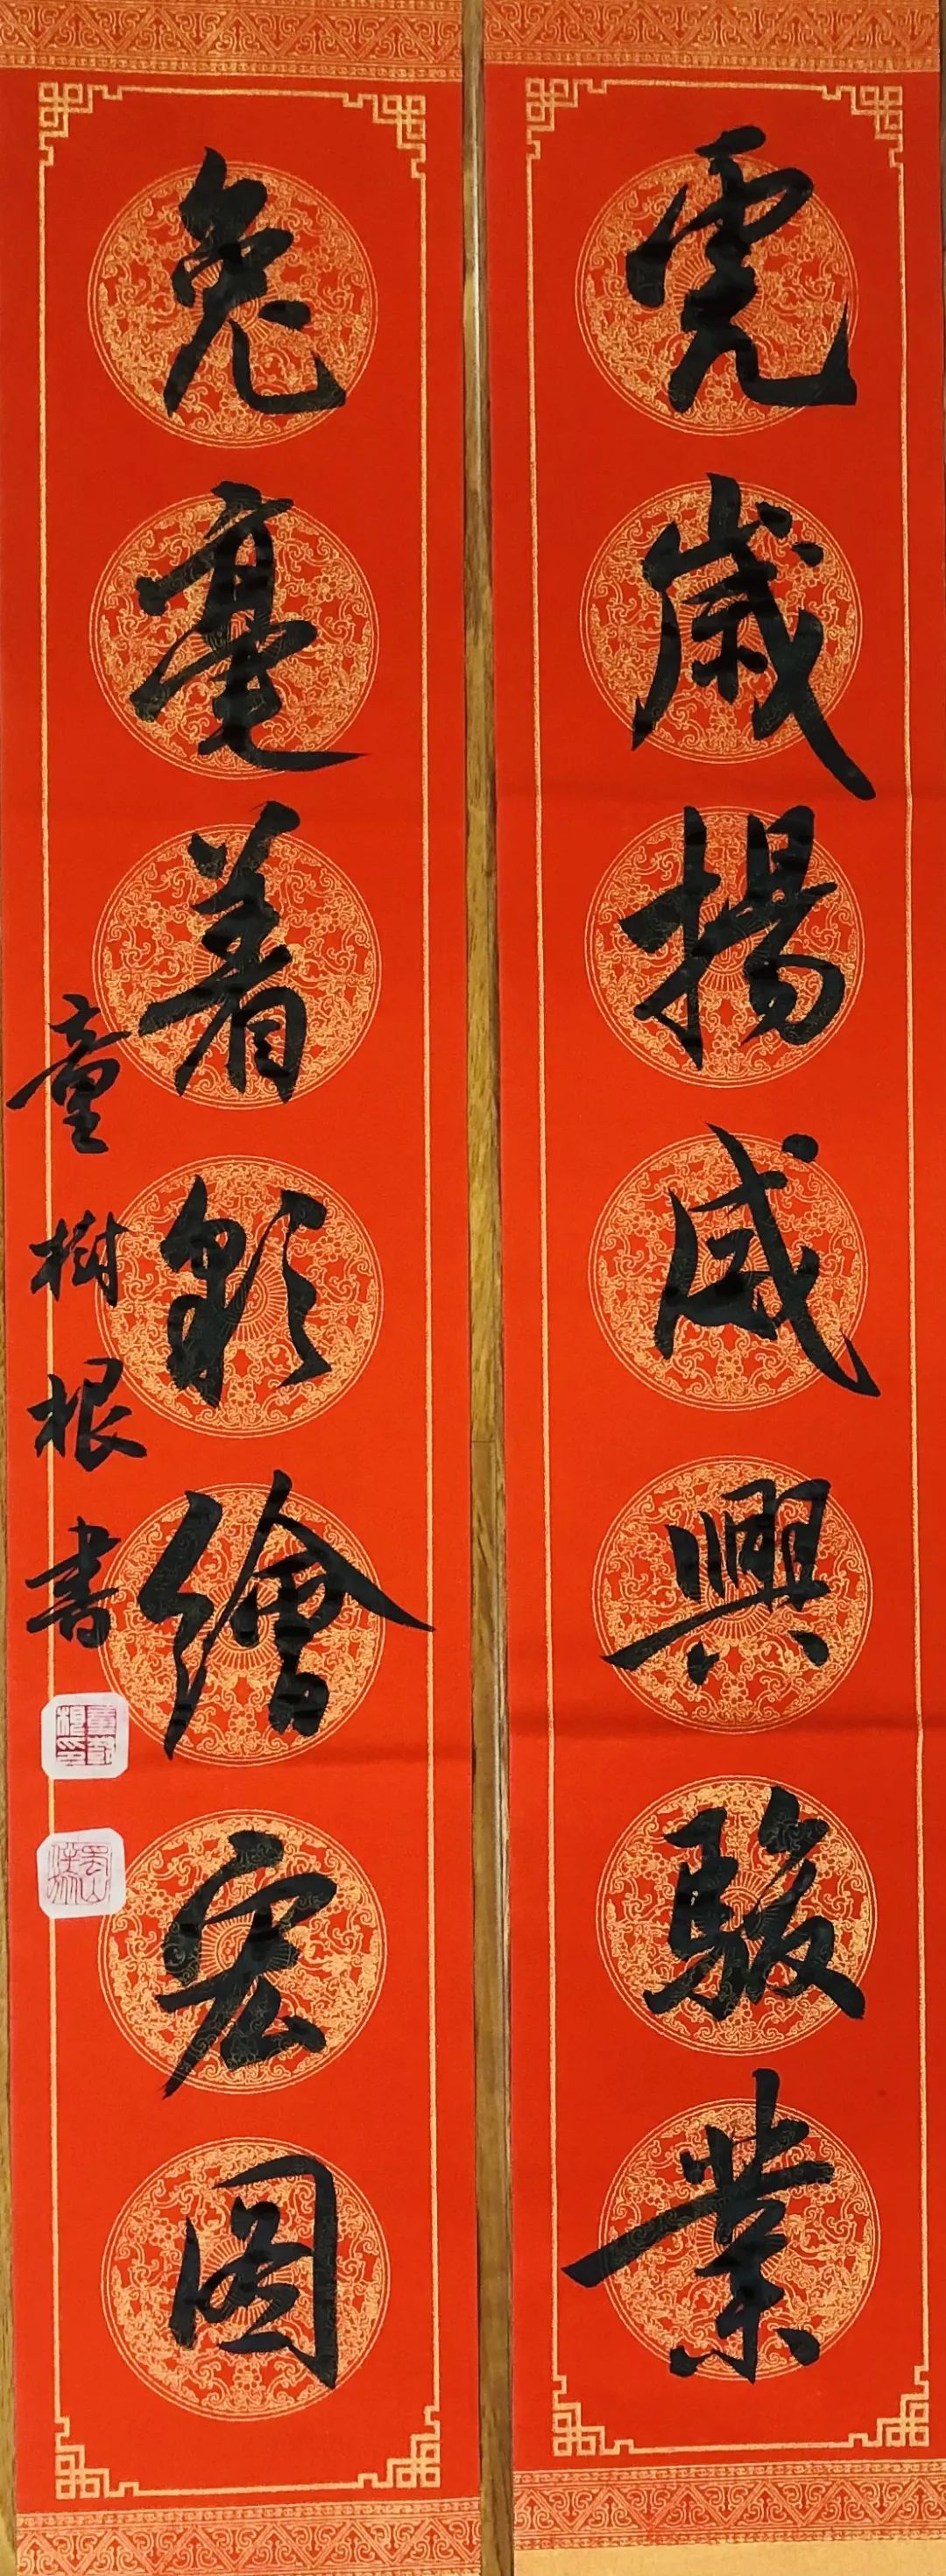 虎歲揚威興駿業
兔毫着彩繪宏圖
童樹根書